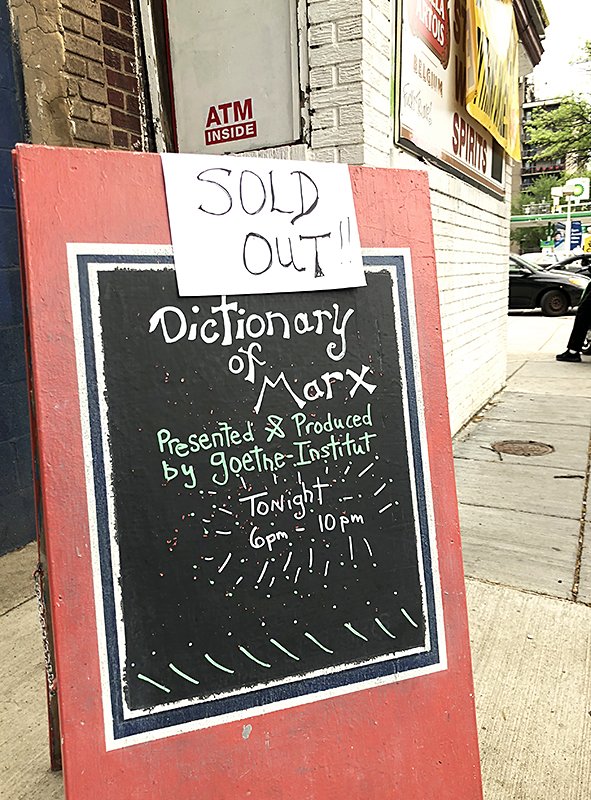 ATM
INSIDE
ARTOIS
BELGIUM
SPIRITS
SOLD
OUT!!
Dictionary
of
Marx
Presented & Produced
by goethe-Institut
Tonight
6pm - 10pm